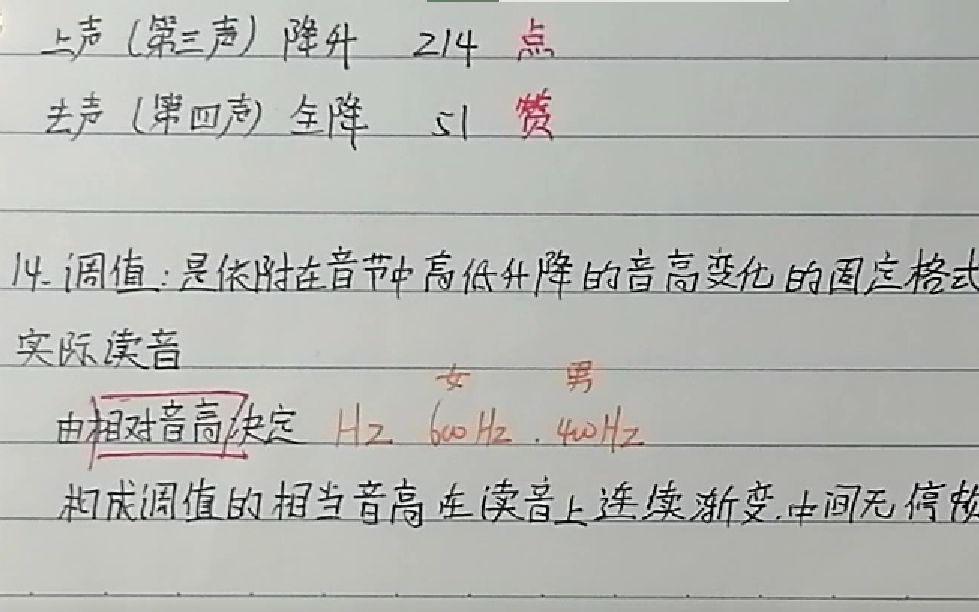 上声（第三声）降升 214 点
去声（第四声）全降 51 赞
14. 调值：是依附在音节中高低升降的音高变化的固定格式
实际读音
女 男
由相对音高决定 Hz 600Hz . 400Hz
构成调值的相当音高在读音上连续渐变.中间无停顿